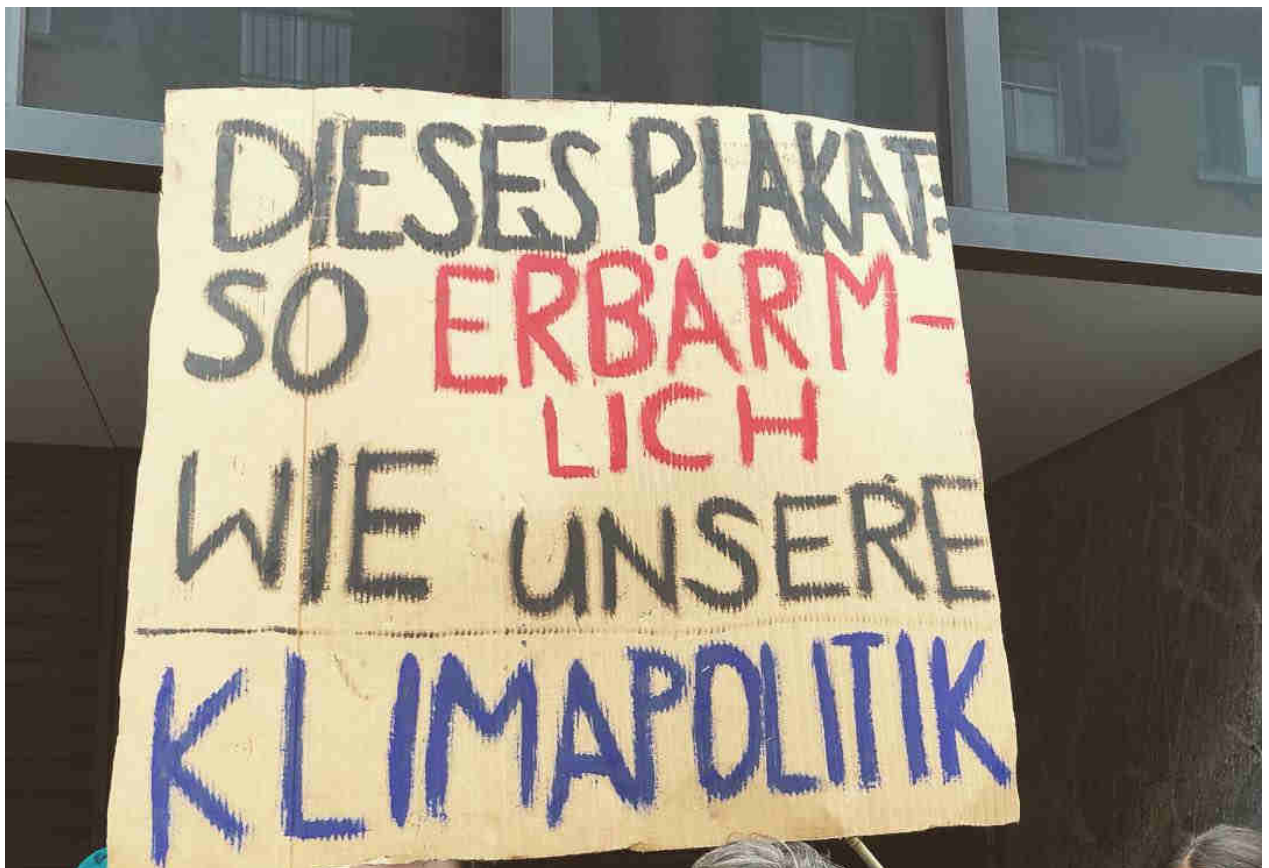 DIESES PLAKAT:
SO ERBÄRM-
LICH
WIE UNSERE
KLIMAPOLITIK